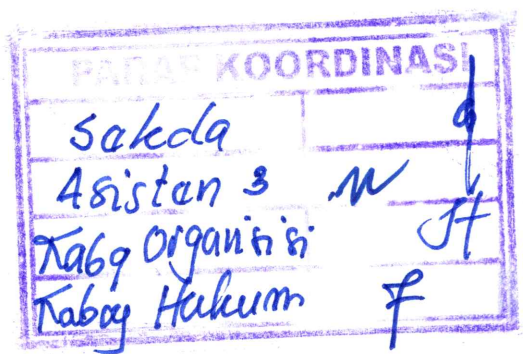 PARAF KOORDINASI
Sekda
Asistan 3
Kabag Organisisi
Kabag Hukum